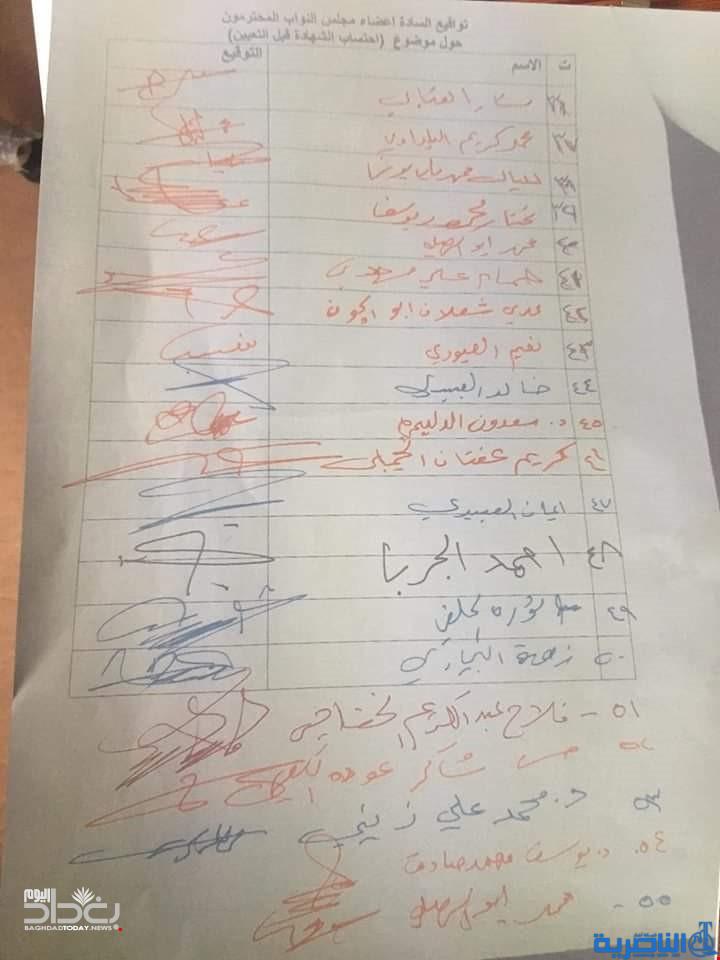 تواقيع السادة اعضاء مجلس النواب المحترمون
حول موضوع (احتساب الشهادة قبل التعيين)
ت الاسم التوقيع
٣٧ محمد كريم البلداوي
٣٩ مختار محمود يوسف
٤٠ محمد ابو سهيل
٤١ همام علي مهدي
٤٢ عدي شعلان ابو الجون
٤٣ نعيم العبودي
٤٤ خالد العبيدي
٤٥ د. سعدون الدليمي
٤٦ كريم عفتان الجميلي
٤٧ ايمان العبيدي
٤٨ احمد الجربا
٤٩
٥٠ زهرة
٥١- فلاح عبد الكريم الخفاجي
٥٢ حسن شاكر عوده
٥٣ د. محمد علي زيني
٥٤. د. يوسف محمد صادق
٥٥- محمد ابو سهيل
بغداد اليوم
BAGHDADTODAY.NEWS
الناصرية